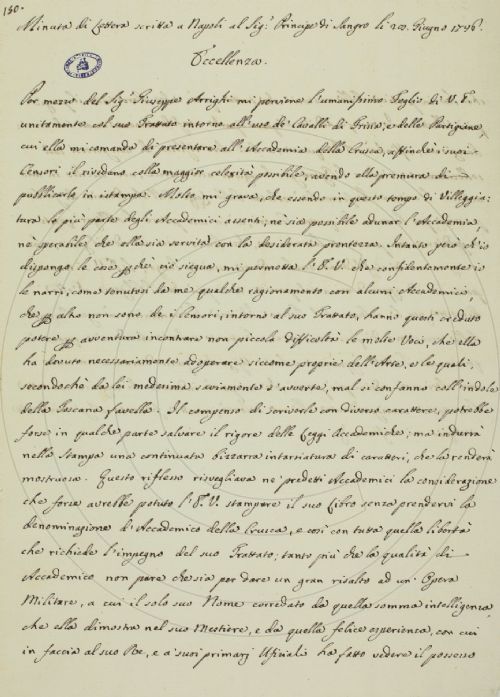 130.
Minuta di Lettera scritta a Napoli al Sig.r Principe di Sangro li 20. Giugno 1746.
Eccellenza.
Per mezzo del Sig.r Giuseppe Arrighi mi perviene l'umanissimo Foglio di V. E.
unitamente col suo Trattato intorno all'uso de' Cavalli di Frisia, e delle Partigiane,
cui ella mi comanda di presentare all'Accademia della Crusca, affinchè i suoi
Censori il rivedano colla maggior celerità possibile, avendo ella premura di
pubblicarlo in istampa. Molto mi grava, che essendo in questo tempo di Villeggia:
tura la più parte degli Accademici assenti, nè sia possibile adunar l'Accademia,
nè sperabile che ella sia servita con la desiderata prontezza. Intanto però ch'io
dispongo le cose perchè ciò siegua, mi permetta l'E. V. che confidentemente io
le narri, come tenutosi da me qualche ragionamento con alcuni Accademici,
che per altro non sono de i Censori, intorno al suo Trattato, hanno questi creduto
potere per avventura incontrare non piccola difficoltà le molte Voci, che ella
ha dovuto necessariamente adoperare siccome proprie dell'Arte, e le quali,
secondochè da lei medesima saviamente s'avverte, mal si confanno coll'indole
della Toscana favella. Il compenso di scriverle con diverso carattere, potrebbe
forse in qualche parte salvare il rigore delle Leggi Accademiche; ma indurrà
nella Stampa una continuata bizzarra intarsiatura di caratteri, che la renderà
mostruosa. Questo riflesso risvegliava ne' predetti Accademici la considerazione
che forse avrebbe potuto l'E. V. stampare il suo Libro senza prendervi la
denominazione d'Accademico della Crusca, e così con tutta quella libertà
che richiede l'impegno del suo Trattato; tanto più che la qualità di
Accademico non pare che sia per dare un gran risalto ad un' Opera
Militare, a cui il solo suo Nome corredato da quella somma intelligenza,
che ella dimostra nel suo Mestiere, e da quella felice esperienza, con cui
in faccia al suo Re, e a' suoi primarj Ufiziali ha fatto vedere il possesso